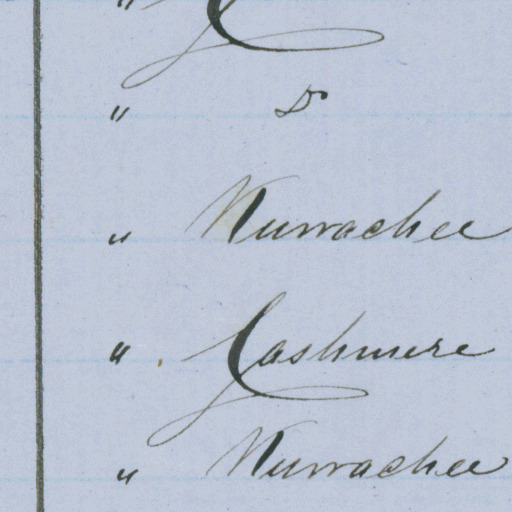 "
" Do
" Kurrachee
" Cashmere
" Kurrachee